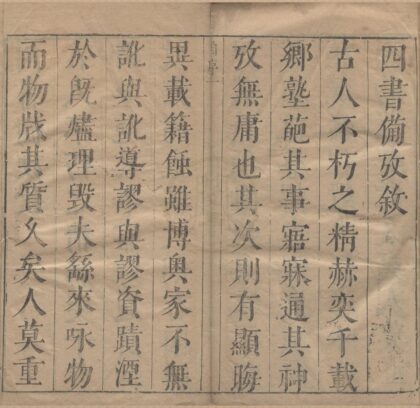 四書備攷敘
古人不朽之精赫奕千載
鄉塾葩其事寤寐通其神
攷無庸也其次則有顯晦
異載籍蝕雖博奧家不無
訛與訛導謬與謬資蹟湮
於旣燼理毀夫繇來咏物
而物戕其質久矣人莫重